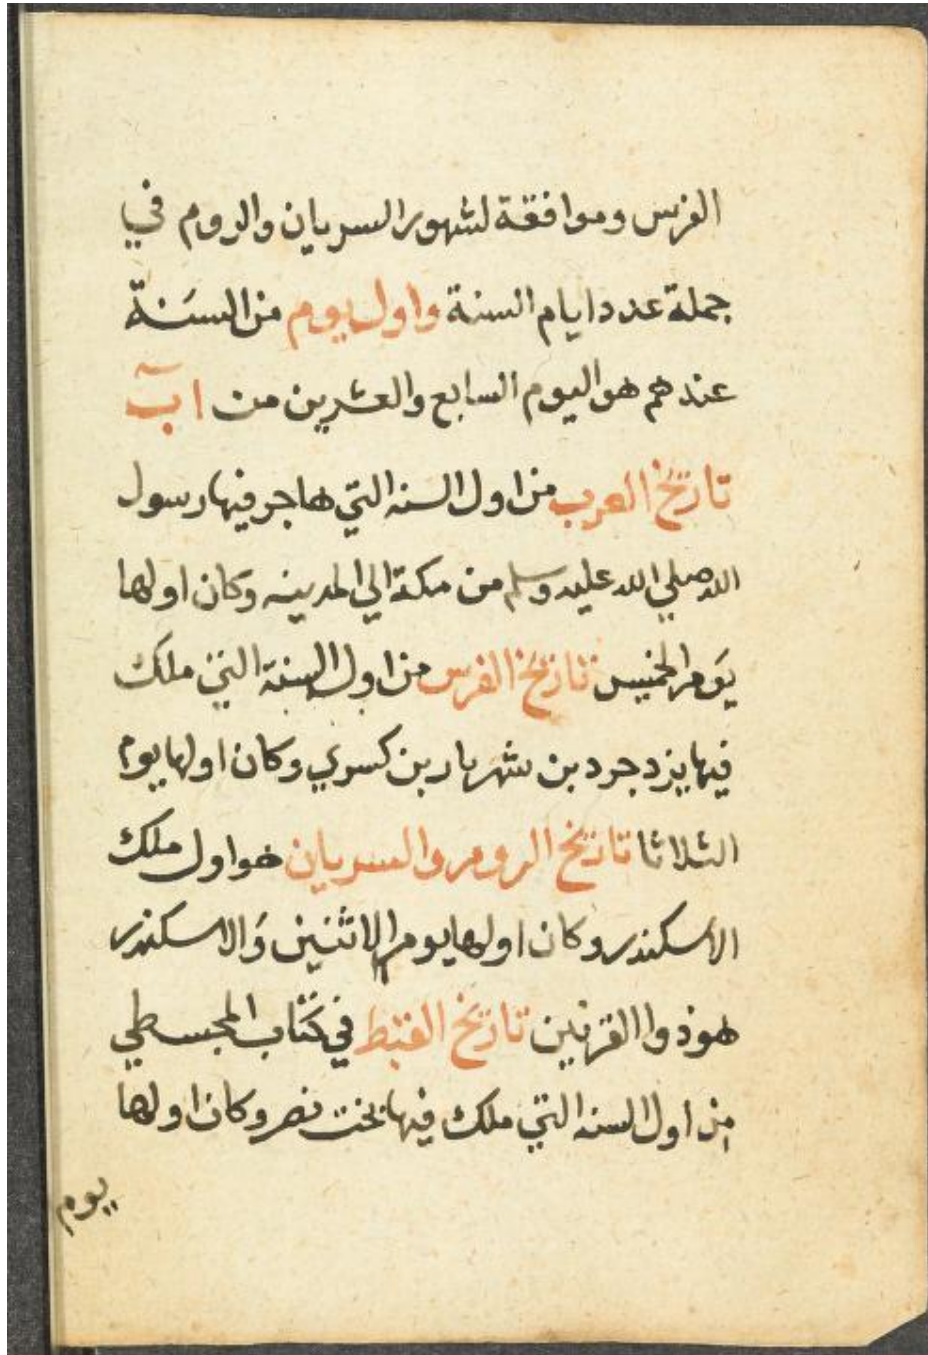 الفرس وموافقة لشهور السريان والروم في
جملة عدد ايام السنة واول يوم من السَنة
عندهم هو اليوم السابع والعشرين من آب
تاريخ العرب من اول السنه التي هاجر فيها رسول
الله صلي الله عليه وسلم من مكة الي المدينه وكان اولها
يَوم الخميس تاريخ الفرس من اول السنة التي ملك
فيها يزدجرد بن شهريار بن كسري وكان اولها يوم
الثلاثا تاريخ الروم والسريان هو اول ملك
الاسكندر وكان اولها يوم الاثنين وَالاسكندر
هو ذوا القرنين تاريخ القبط في كتَاب المجسطي
من اول السنه التي ملك فيها بخت نصر وكان اولها
يوم